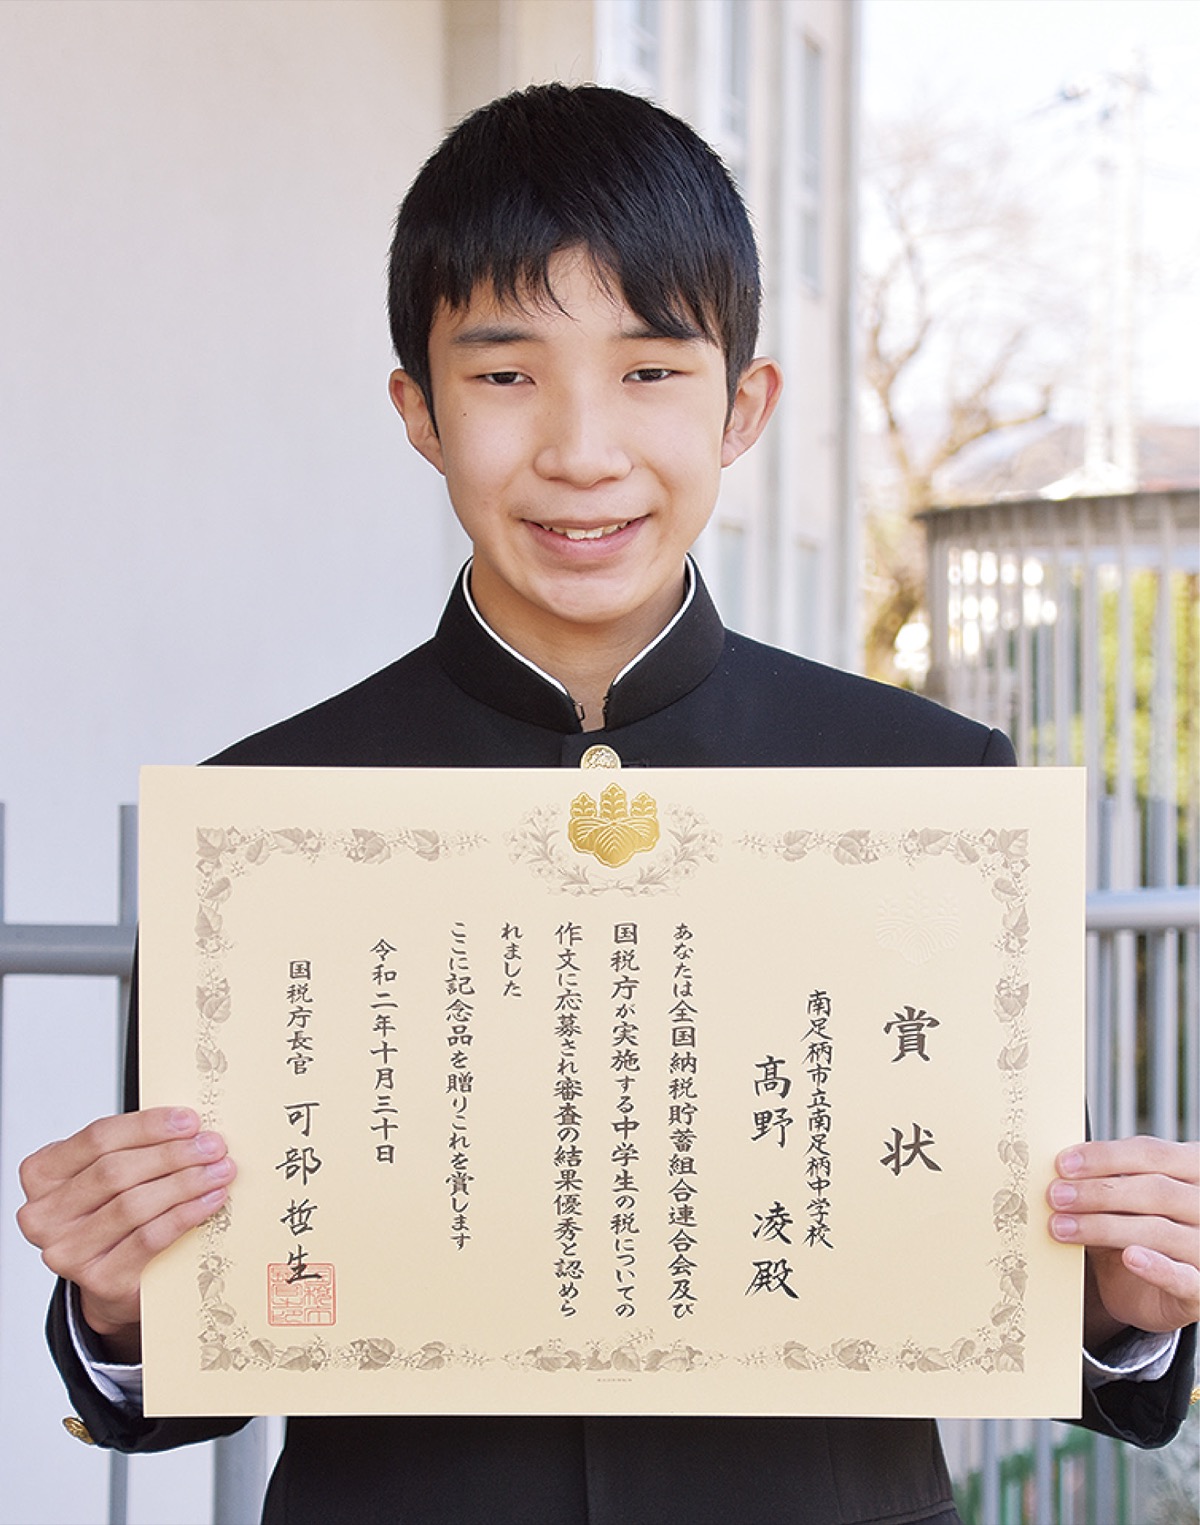 賞状
南足柄市立南足柄中学校
髙野 凌殿
あなたは全国納税貯蓄組合連合会及び
国税庁が実施する中学生の税についての
作文に応募され審査の結果優秀と認めら
れました
ここに記念品を贈りこれを賞します
令和二年十月三十日
国税庁長官 可部哲生